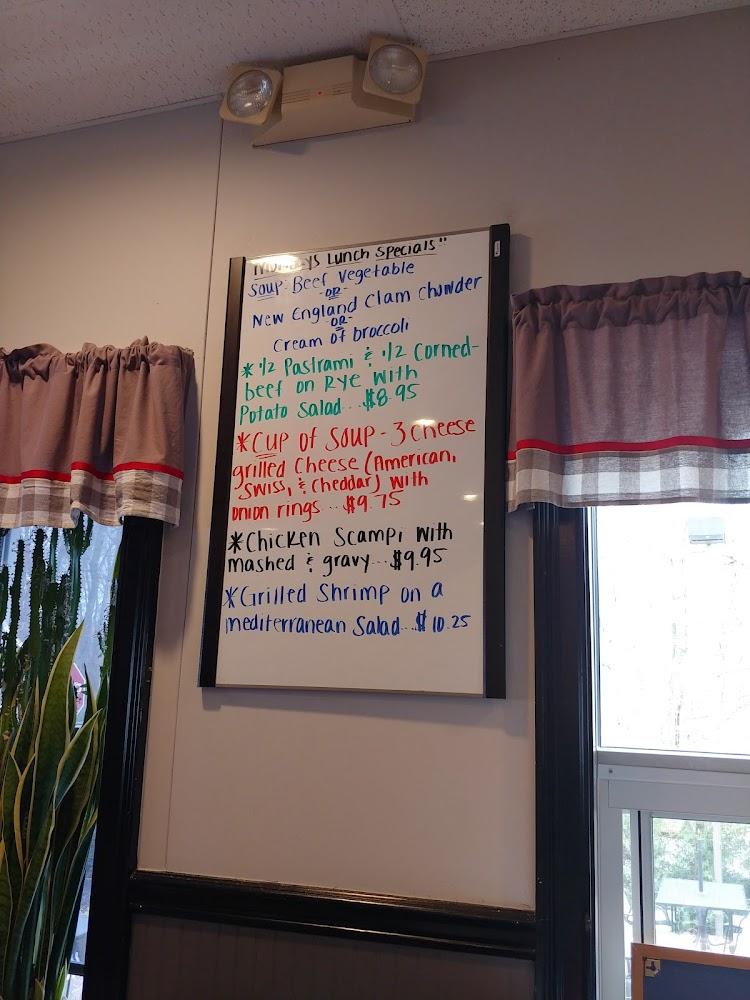 Lunch Specials"
Soup-Beef Vegetable
-OR-
New England Clam Chowder
-OR-
Cream Of broccoli
* 1/2 Pastrami & 1/2 Corned-
beef on Rye with
Potato Salad...$8.95
*Cup of Soup - 3 Cheese
grilled Cheese (American,
Swiss, & Cheddar) with
onion rings...$9.75
*Chicken Scampi with
mashed & gravy...$9.95
*Grilled Shrimp on a
mediterranean Salad...$10.25